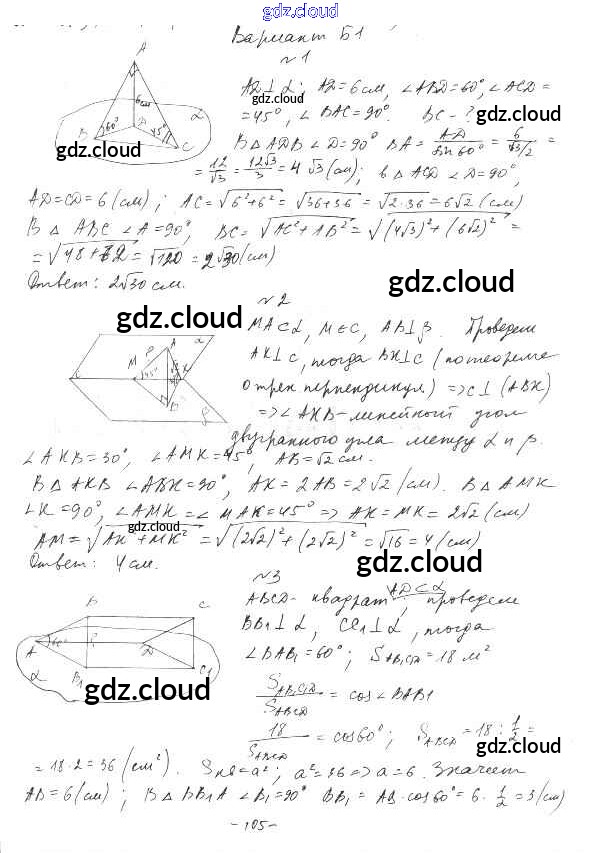 gdz.cloud
Вариант Б1
№1
AD⊥α; AD=6см, ∠ABD=60°, ∠ACD=
=45°, ∠BAC=90°. BC-?
В △ADB ∠D=90° BA=AD/sin60°=6/(√3/2)=
=12/√3=12√3/3=4√3(см); в △ACD ∠D=90°,
AD=CD=6(см); AC=√(6²+6²)=√(36+36)=√(2·36)=6√2(см)
В △ABC ∠A=90°, BC=√(AC²+AB²)=√((4√3)²+(6√2)²)=
=√(48+72)=√120=2√30(см)
Ответ: 2√30 см.
gdz.cloud
gdz.cloud
gdz.cloud
gdz.cloud
№2
MA⊂α, M∈C, AB⊥β. Проведем
AK⊥C, тогда BK⊥C (по теореме
о трех перпендикул) => C⊥(ABK)
=> ∠AKB-линейный угол
двугранного угла между α и β.
∠AKB=30°, ∠AMK=45°, AB=√2см.
В △AKB ∠ABK=90°, AK=2AB=2√2(см). В △AMK
∠K=90°, ∠AMK=∠MAK=45° => AK=MK=2√2(см)
AM=√(AK²+MK²)=√((2√2)²+(2√2)²)=√16=4(см)
Ответ: 4см.
gdz.cloud
gdz.cloud
gdz.cloud
gdz.cloud
gdz.cloud
№3
ABCD-квадрат, AD⊂α, проведем
BB₁⊥α, CC₁⊥α, тогда
∠BAB₁=60°; S_AB₁C₁D=18 м²
S_AB₁C₁D/S_ABCD=cos∠BAB₁
18/S_ABCD=cos60°; S_ABCD=18:1/2=
=18·2=36(см²). Sкв=a²; a²=36=>a=6. Значит
AB=6(см); В △BB₁A ∠B₁=90° BB₁=AB·cos60°=6·1/2=3(см)
gdz.cloud
gdz.cloud
gdz.cloud
-105-